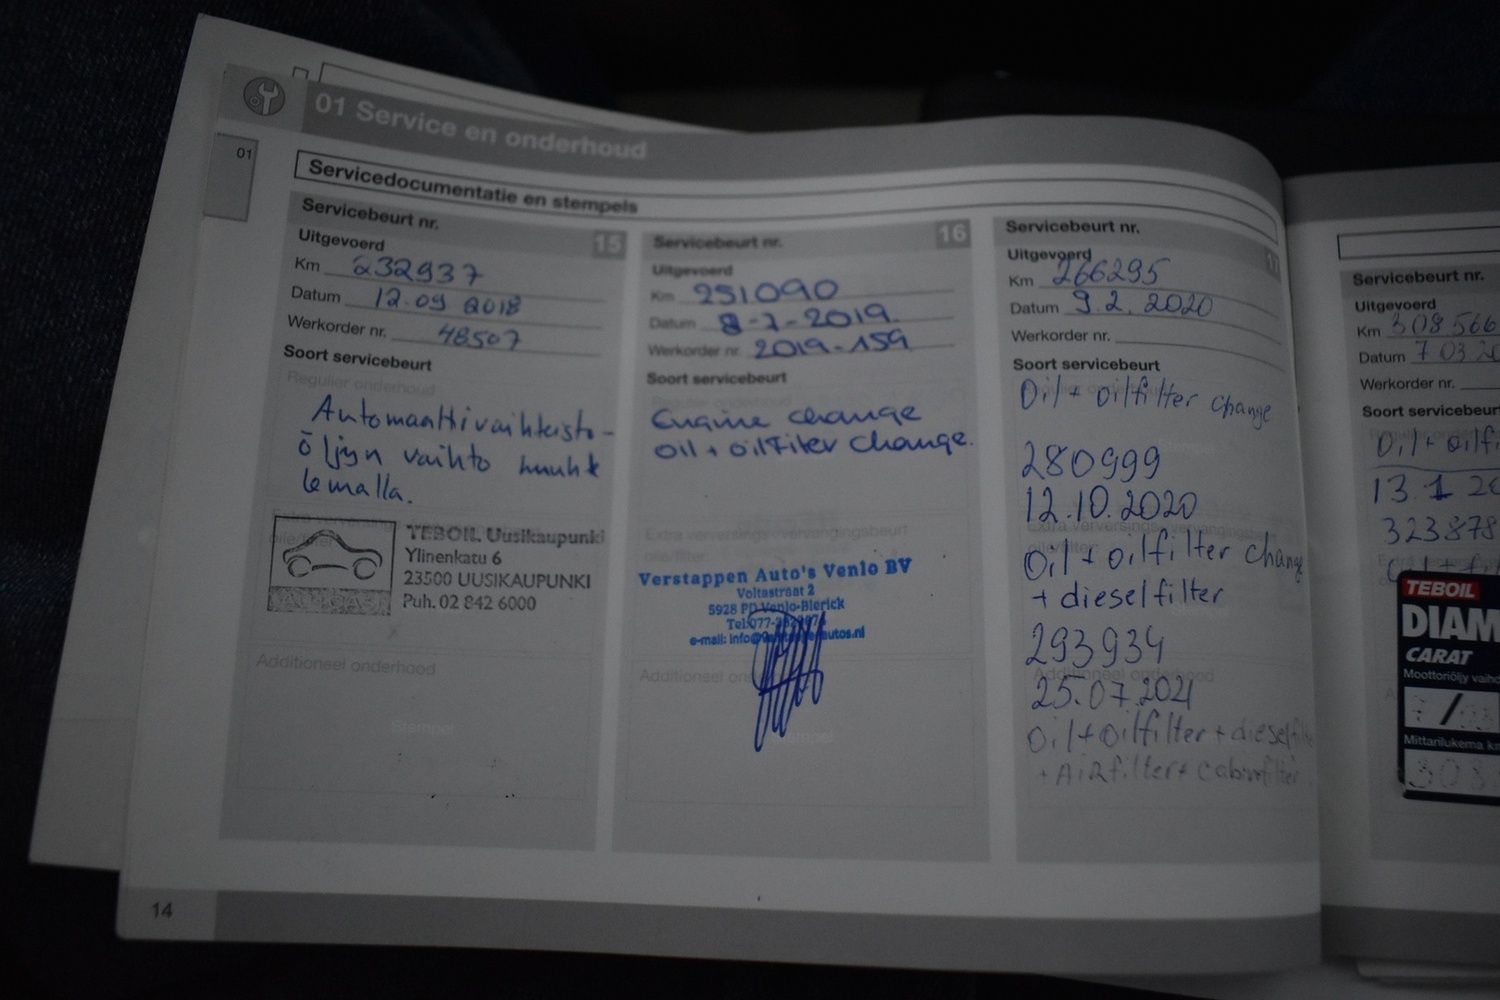 01 Service en onderhoud
01
Servicedocumentatie en stempels
Servicebeurt nr.
15
Uitgevoerd
Km 232937
Datum 12.09 2018
Werkorder nr. 48507
Soort servicebeurt
Regulier onderhoud
Automaattivaihteisto-
öljyn vaihto
lemalla.
Extra verversings
olie/filter
TEBOIL Uusikaupunki
Ylinenkatu 6
23500 UUSIKAUPUNKI
Puh. 02 842 6000
Additioneel onderhoud
Stempel
Servicebeurt nr.
16
Uitgevoerd
Km 251090
Datum 8-7-2019
Werkorder nr. 2019-159
Soort servicebeurt
Regulier onderhoud
Engine change
oil + oilfilter change.
Extra verversings-/vervangingsbeurt
olie/filter:
Verstappen Auto's Venlo BV
Voltastraat 2
5928 PD Venlo-Blerick
e-mail:
Additioneel
Stempel
Servicebeurt nr.
17
Uitgevoerd
Km 266295
Datum 9.2.2020
Werkorder nr.
Soort servicebeurt
Oil + oilfilter change
280999
12.10.2020
Oil + oilfilter change
+ dieselfilter
293934
25.07.2021
Oil + oilfilter + dieselfilter
+ Airfilter + cabinfilter
14
Servicebeurt nr.
Uitgevoerd
Km 308566
Datum 7 03 20
Werkorder nr.
Soort servicebeurt
Oil + oilfi
13.1 20
323878
TEBOIL
DIAM
CARAT
Moottoriöljy vaihd
7/
Mittarilukema km
308